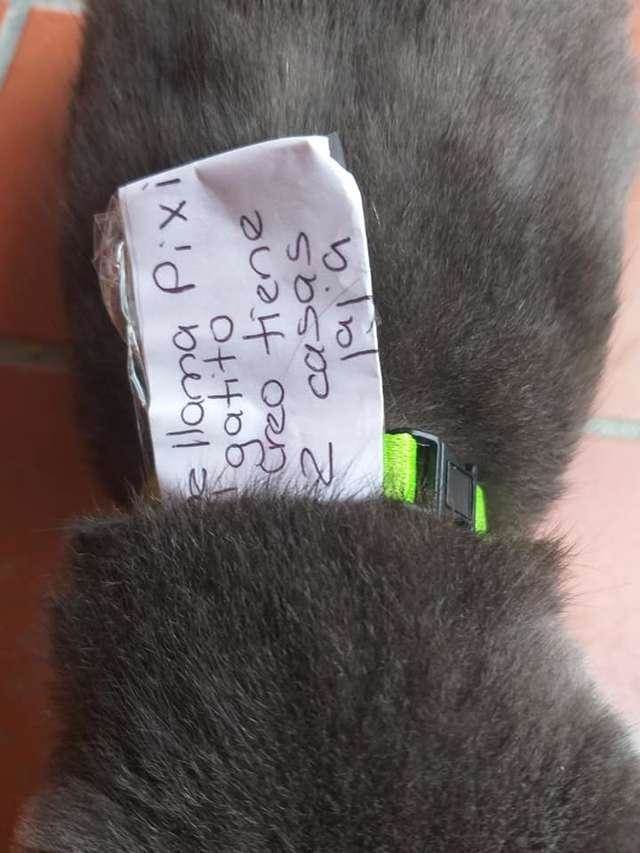 e llama Pixi
i gatito
creo tiene
2 casas
jaja